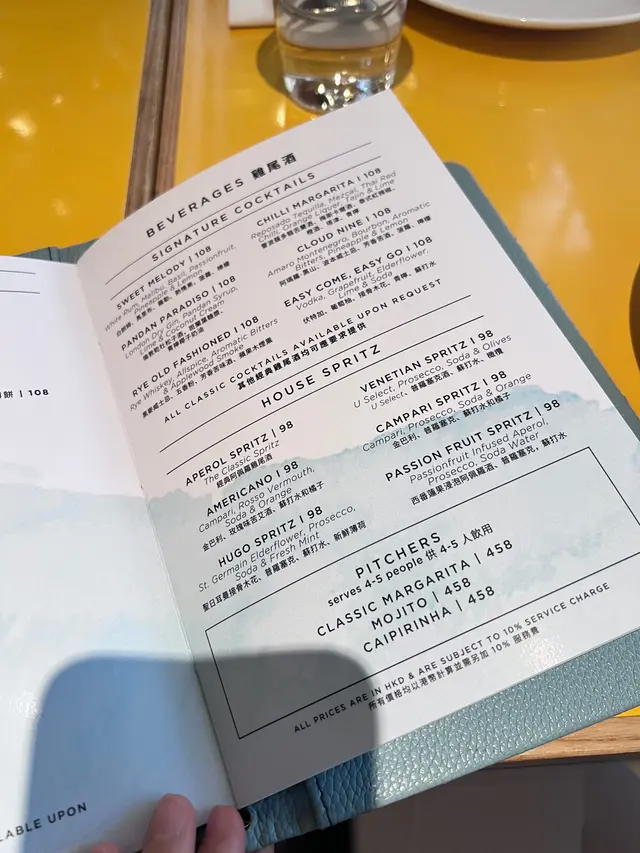 餅 | 108
LABLE UPON
BEVERAGES 雞尾酒
SIGNATURE COCKTAILS
SWEET MELODY | 108
White Rum, Malibu, Basil, Passionfruit,
Pineapple & Lemon
PANDAN PARADISO | 108
London Dry Gin, Pandan Syrup,
Lime & Coconut Cream
RYE OLD FASHIONED | 108
Rye Whiskey, Allspice, Aromatic Bitters
& Applewood Smoke
CHILLI MARGARITA | 108
Reposado Tequila, Mezcal, Thai Red
Chilli, Orange Liqueur, Tajin & Lime
CLOUD NINE | 108
Amaro Montenegro, Bourbon, Aromatic
Bitters, Pineapple & Lemon
EASY COME, EASY GO | 108
Vodka, Grapefruit, Elderflower,
Lime & Soda
伏特加、葡萄柚、接骨木花、青檸、蘇打水
ALL CLASSIC COCKTAILS AVAILABLE UPON REQUEST
其他經典雞尾酒均可應要求提供
HOUSE SPRITZ
APEROL SPRITZ | 98
The Classic Spritz
經典阿佩羅雞尾酒
AMERICANO | 98
Campari, Rosso Vermouth,
Soda & Orange
金巴利、玫瑰味苦艾酒、蘇打水和橘子
HUGO SPRITZ | 98
St. Germain Elderflower, Prosecco,
Soda & Fresh Mint
聖日耳曼接骨木花、普羅塞克、蘇打水、新鮮薄荷
VENETIAN SPRITZ | 98
U Select, Prosecco, Soda & Olives
U Select、普羅塞克酒、蘇打水、橄欖
CAMPARI SPRITZ | 98
Campari, Prosecco, Soda & Orange
金巴利、普羅塞克、蘇打水和橘子
PASSION FRUIT SPRITZ | 98
Passionfruit Infused Aperol,
Prosecco, Soda Water
西番蓮果浸泡阿佩羅酒、普羅塞克、蘇打水
PITCHERS
serves 4-5 people 供 4-5 人飲用
CLASSIC MARGARITA | 458
MOJITO | 458
CAIPIRINHA | 458
ALL PRICES ARE IN HKD & ARE SUBJECT TO 10% SERVICE CHARGE
所有價格均以港幣計算並需另加 10% 服務費